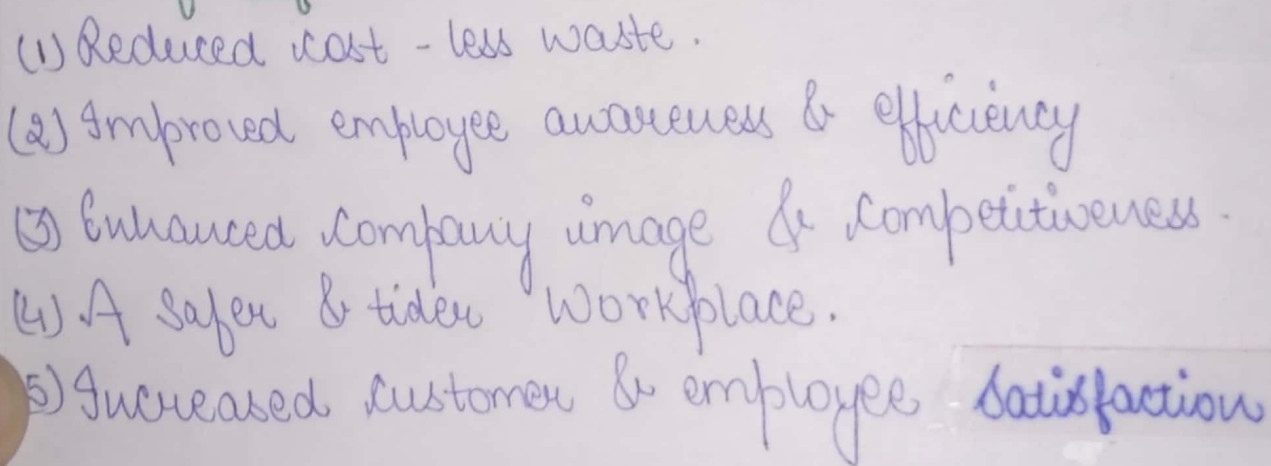 (1) Reduced cost - less waste.
(2) Improved employee awareness & efficiency
(3) Enhanced company image & competitiveness.
(4) A safer & tider workplace.
5) Increased customer & employee satisfaction